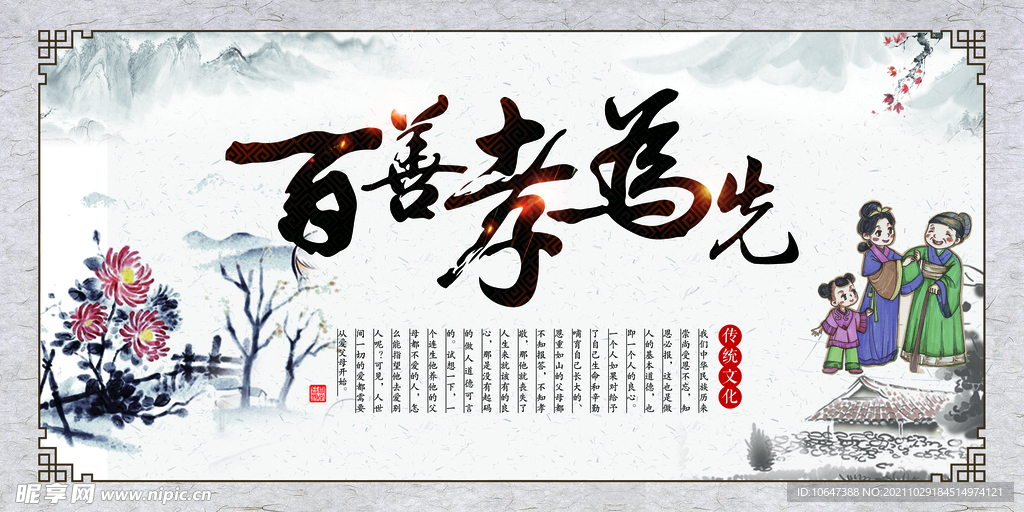 百善孝为先
传统文化
我们中华民族历来
崇尚受恩不忘，知
恩必报，这也是做
人的基本道德，也
即一个人的良心。
一个人如果对给予
了自己生命和辛勤
哺育自己长大的、
恩重如山的父母都
不知报答，不知孝
敬，那他就丧失了
人生来就该有的良
心，那是没有起码
的做人道德可言
的。试想一下，一
个连生他养他的父
母都不爱的人，怎
么能指望他去爱别
人呢？可见，人世
间一切的爱都需要
从爱父母开始。
昵享网 www.nipic.cn
ID:10647388 NO:20211029184514974121